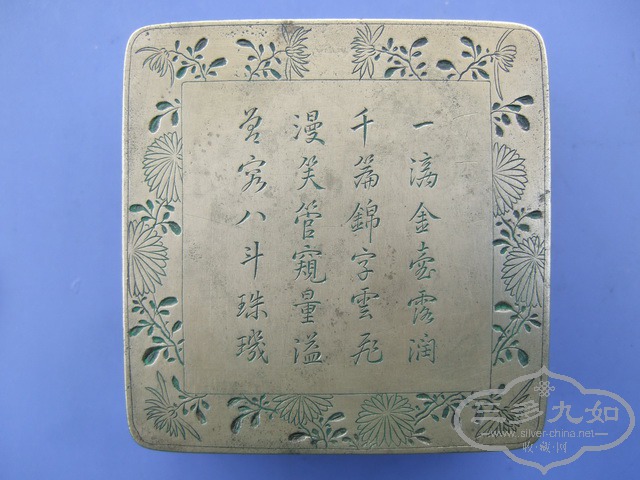 一滴金壺露潤
千篇錦字雲飛
漫笑管窺量溢
若容八斗珠璣
三多九如
www.silver-china.net
收·藏·网